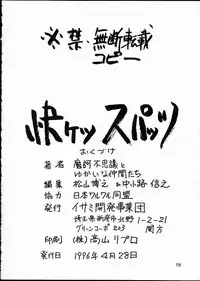 ※禁・無断転載
コピー
快ケツ スパッツ
おくづけ
著者 魔訶不思議と
ゆかいな仲間たち
編集 松山博之&中小路信之
協力 日本ワルワル同盟
発行 イサミ開発事業団
埼玉県新座市北野1-2-21
グリーンコーポ203 関方
印刷 (株)高山リプロ
発行日 1996年4月28日